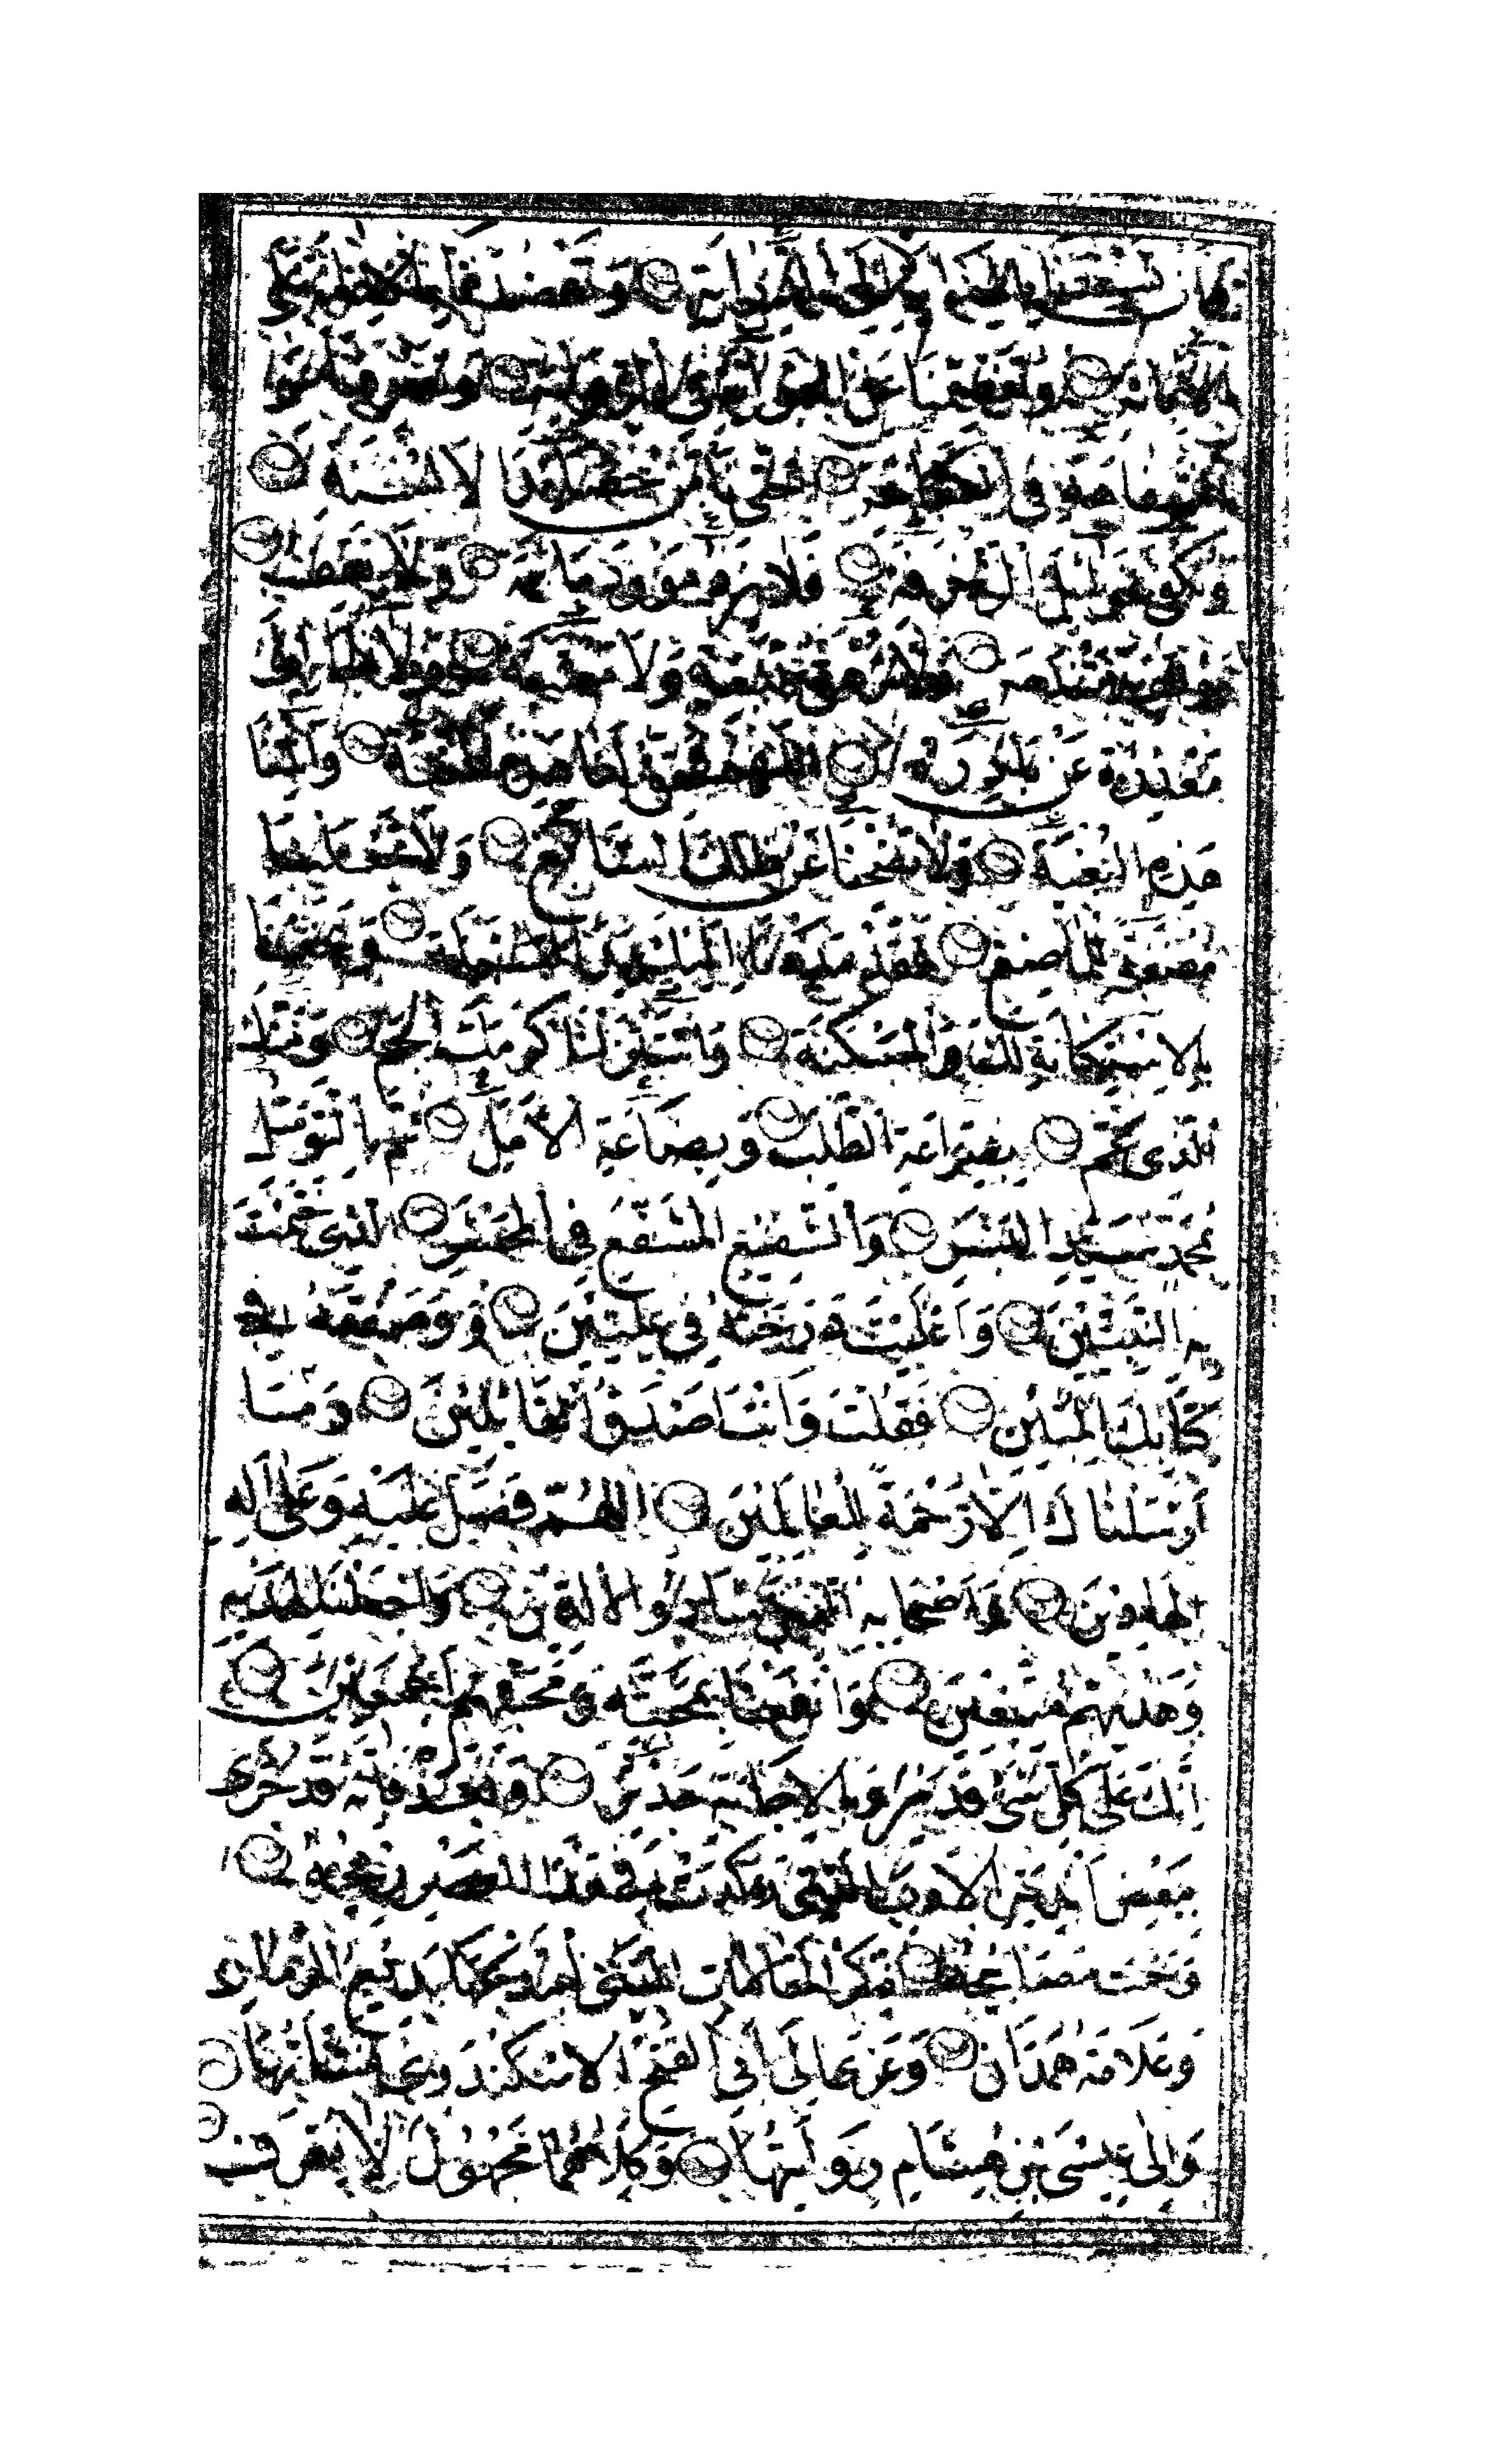 وتعضدنا بالإعانة على
الإبانة وتعصمنا عن الغواية في الرواية وتصرفنا عن
السفاهة في الفكاهة حتى نأمن حصائد الألسنة
ونكفى غوائل الزخرفة فلا نرد مورد مأثمة ولا نقف
موقف مندمة ولا نرهق بتبعة ولا معتبة ولا نلجأ إلى
معذرة عن بادرة اللهم فحقق لنا هذه المنية وأنلنا
هذه البغية ولا تضحنا عن ظلك السابغ ولا تجعلنا
مضغة للماضغ فقد مددنا إليك يد المسألة وبخعنا
بالاستكانة لك والمسكنة واستنزلنا كرمك الجم وفضلك
الذي عم بضراعة الطلب وبضاعة الأمل ثم بالتوسل
بمحمد سيد البشر والشفيع المشفع في المحشر الذي ختمت
به النبيين وأعليت درجته في عليين ووصفته في
كتابك المبين فقلت وأنت أصدق القائلين وما
أرسلناك إلا رحمة للعالمين اللهم فصل عليه وعلى آله
الهادين وأصحابه الذين شادوا الدين واجعلنا لهديه
وهديهم متبعين وانفعنا بمحبته ومحبتهم أجمعين
إنك على كل شيء قدير وبالإجابة جدير وبعد فإنه قد جرى
ببعض أندية الأدب الذي ركدت في هذا العصر ريحه
وخبت مصابيحه ذكر المقامات التي ابتدعها بديع الزمان
وعلامة همذان وعزا إلى أبي الفتح الاسكندري نشأتها
وإلى عيسى بن هشام روايتها وكلاهما مجهول لا يعرف